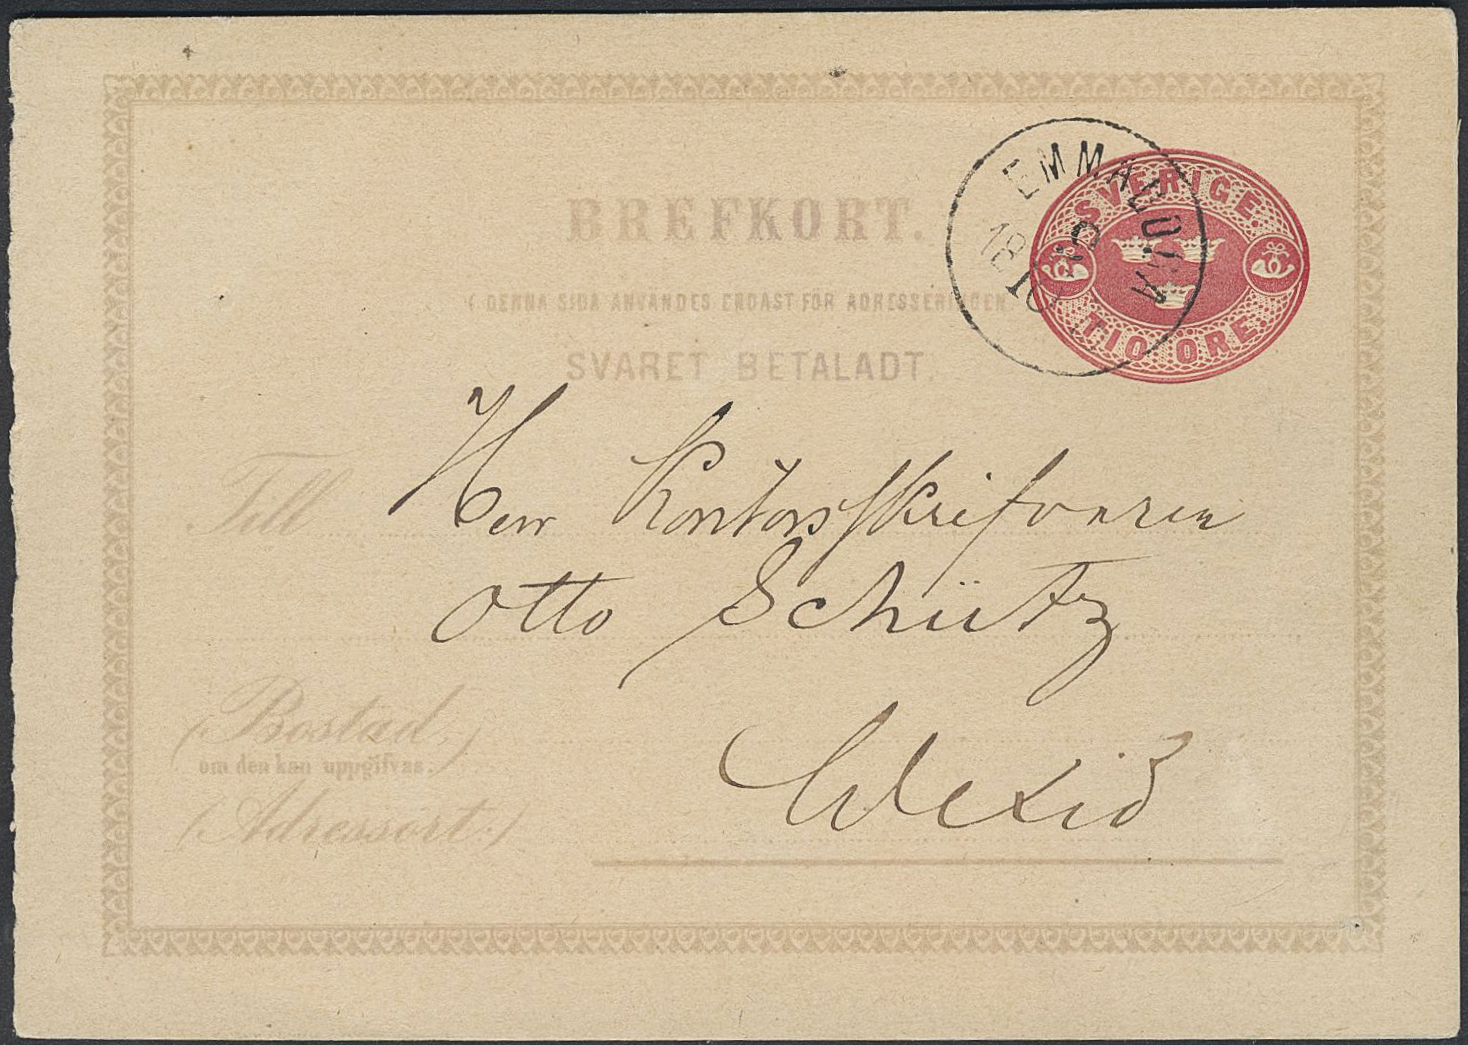 BREFKORT.
( DENNA SIDA ANVÄNDES ENDAST FÖR ADRESSERINGEN
SVARET BETALADT.
EMMABODA
18 10
SVERIGE.
TIO ÖRE.
Till Herr Kontorsskrifvaren
Otto Schütz
(Bostad.)
om den kan uppgifvas.
Wexiö
(Adressort.)